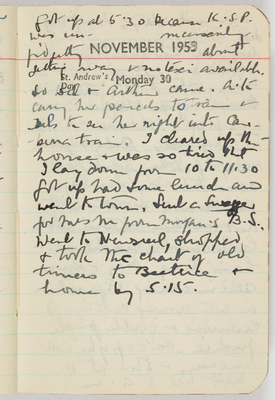 Got up at 5.30 because K.S.P.
was un- necessarily
fidgetty about
NOVEMBER 1953
getting away & no taxi available.
St. Andrew's Monday 30
So Ell & Arthur came. A. to
carry her parcels to train &
Ell to see her right into Can-
berra train. I cleared up the
house & was so tired that
I lay down from 10 to 11.30
Got up had some lunch and
went to town. Sent a
for Mrs M from Morgan's B.S.
Went to Newsreel, shopped
& took the chart of old
timers to Beatrice &
home by 5.15.